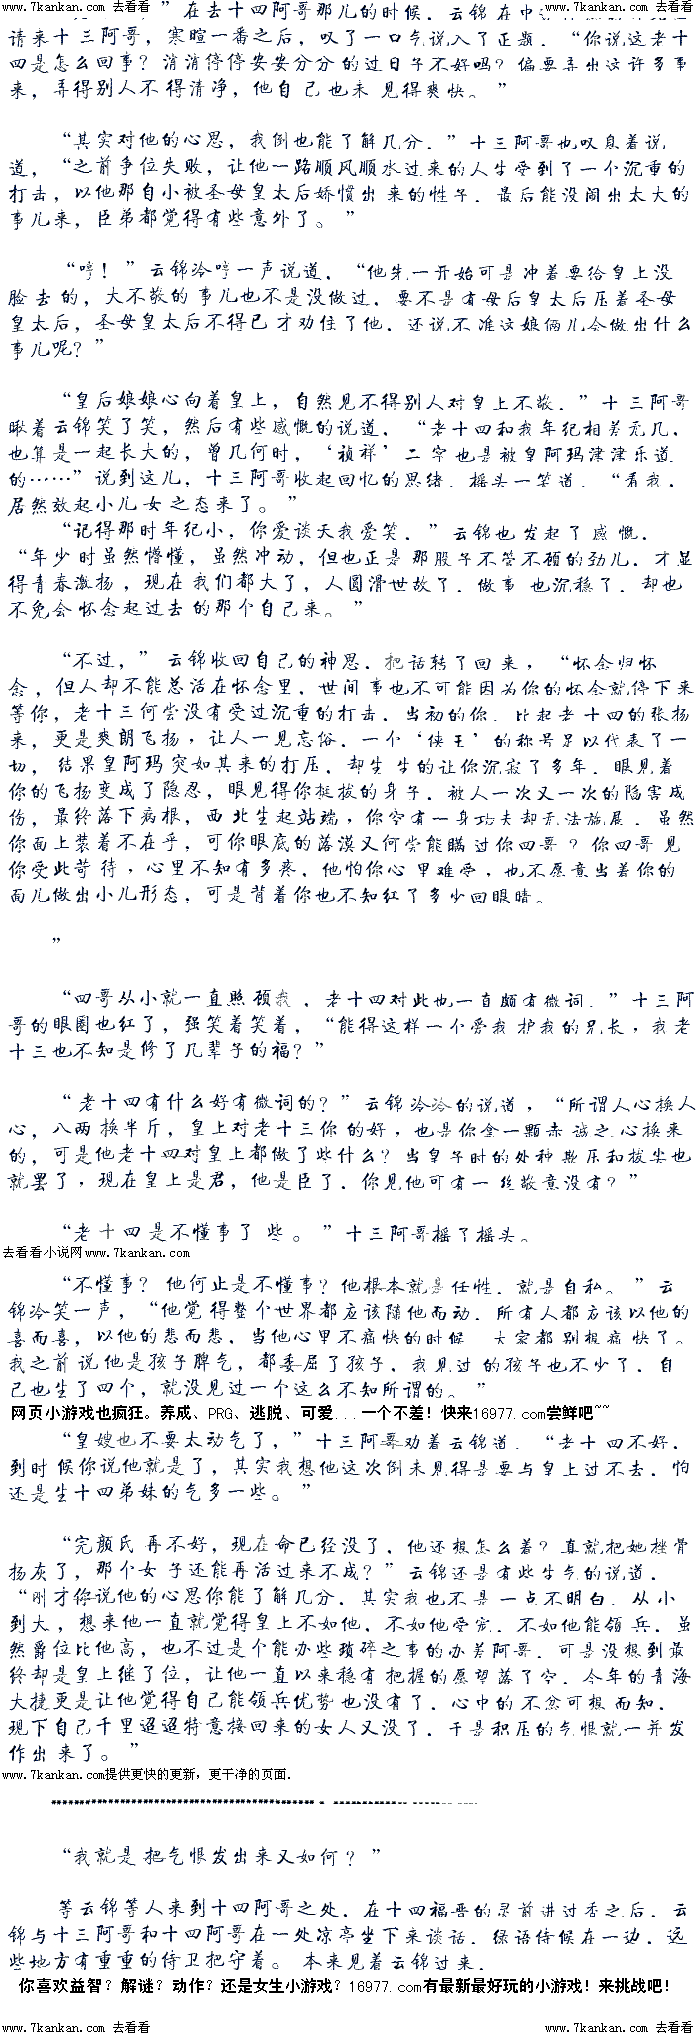 www.7kankan.com 去看看 www.7kankan.com 去看看
” 在去十四阿哥那儿的时候，云锦在中
请来十三阿哥，寒暄一番之后，叹了一口气说入了正题，“你说这老十
四是怎么回事？消消停停安安分分的过日子不好吗？偏要弄出这许多事
来，弄得别人不得清净，他自己也未见得爽快。”
“其实对他的心思，我倒也能了解几分，”十三阿哥也叹息着说
道，“之前争位失败，让他一路顺风顺水过来的人生受到了一个沉重的
打击，以他那自小被圣母皇太后娇惯出来的性子，最后能没闹出太大的
事儿来，臣弟都觉得有些意外了。”
“哼！”云锦冷哼一声说道，“他先一开始可是冲着要给皇上没
脸去的，大不敬的事儿也不是没做过，要不是有母后皇太后压着圣母
皇太后，圣母皇太后不得已才劝住了他，还说不准这娘俩儿会做出什么
事儿呢？”
“皇后娘娘心向着皇上，自然见不得别人对皇上不敬，”十三阿哥
瞅着云锦笑了笑，然后有些感慨的说道，“老十四和我年纪相差无几，
也算是一起长大的，曾几何时，‘祯祥’二字也是被皇阿玛津津乐道
的……”说到这儿，十三阿哥收起回忆的思绪，摇头一笑道，“看我，
居然效起小儿女之态来了。”
“记得那时年纪小，你爱谈天我爱笑，”云锦也发起了感慨，
“年少时虽然懵懂，虽然冲动，但也正是那股子不管不顾的劲儿，才显
得青春激扬，现在我们都大了，人圆滑世故了，做事也沉稳了，却也
不免会怀念起过去的那个自己来。”
“不过，”云锦收回自己的神思，把话转了回来，“怀念归怀
念，但人却不能总活在怀念里，世间事也不可能因为你的怀念就停下来
等你，老十三何尝没有受过沉重的打击，当初的你，比起老十四的张扬
来，更是爽朗飞扬，让人一见忘俗，一个‘侠王’的称号足以代表了一
切，结果皇阿玛突如其来的打压，却生生的让你沉寂了多年，眼见着
你的飞扬变成了隐忍，眼见得你挺拔的身子，被人一次又一次的陷害成
伤，最终落下病根，西北生起站端，你空有一身功夫却无法施展，虽然
你面上装着不在乎，可你眼底的落漠又何尝能瞒过你四哥？你四哥见
你受此苛待，心里不知有多疼，他怕你心里难受，也不愿意当着你的
面儿做出小儿形态，可是背着你也不知红了多少回眼睛。
”
“四哥从小就一直照顾我，老十四对此也一直颇有微词，”十三阿
哥的眼圈也红了，强笑着笑着，“能得这样一个爱我护我的兄长，我老
十三也不知是修了几辈子的福？”
“老十四有什么好有微词的？”云锦冷冷的说道，“所谓人心换人
心，八两换半斤，皇上对老十三你的好，也是你拿一颗赤诚之心换来
的，可是他老十四对皇上都做了些什么？当皇子时的处种欺压和拔尖也
就罢了，现在皇上是君，他是臣了，你见他可有一丝敬意没有？”
“老十四是不懂事了些。”十三阿哥摇了摇头。
去看看小说网www.7kankan.com
“不懂事？他何止是不懂事？他根本就是任性，就是自私。”云
锦冷笑一声，“他觉得整个世界都应该随他而动，所有人都应该以他的
喜而喜，以他的悲而悲，当他心里不痛快的时候，大家都别想痛快了。
我之前说他是孩子脾气，都委屈了孩子，我见过的孩子也不少了，自
己也生了四个，就没见过一个这么不知所谓的。”
网页小游戏也疯狂。养成、PRG、逃脱、可爱...一个不差！快来16977.com尝鲜吧~~
“皇嫂也不要太动气了，”十三阿哥劝着云锦道，“老十四不好，
到时候你说他就是了，其实我想他这次倒未见得是要与皇上过不去，怕
还是生十四弟妹的气多一些。”
“完颜氏再不好，现在命已经没了，他还想怎么着？直就把她挫骨
扬灰了，那个女子还能再活过来不成？”云锦还是有些生气的说道，
“刚才你说他的心思你能了解几分，其实我也不是一点不明白，从小
到大，想来他一直就觉得皇上不如他，不如他受宠，不如他能领兵，虽
然爵位比他高，也不过是个能办些琐碎之事的办差阿哥，可是没想到最
终却是皇上继了位，让他一直以来稳有把握的愿望落了空，今年的青海
大捷更是让他觉得自己能领兵优势也没有了，心中的不忿可想而知，
现下自己千里迢迢特意接回来的女人又没了，于是积压的气恨就一并发
作出来了。”
www.7kankan.com提供更快的更新，更干净的页面.
“我就是把气恨发出来又如何？”
等云锦等人来到十四阿哥之处，在十四福晋的灵前进过香之后，云
锦与十三阿哥和十四阿哥在一处凉亭坐下来谈话，绿语侍候在一边，远
些地方有重重的侍卫把守着。本来见着云锦过来，
你喜欢益智？解谜？动作？还是女生小游戏？16977.com有最新最好玩的小游戏！来挑战吧！
www.7kankan.com 去看看 www.7kankan.com 去看看